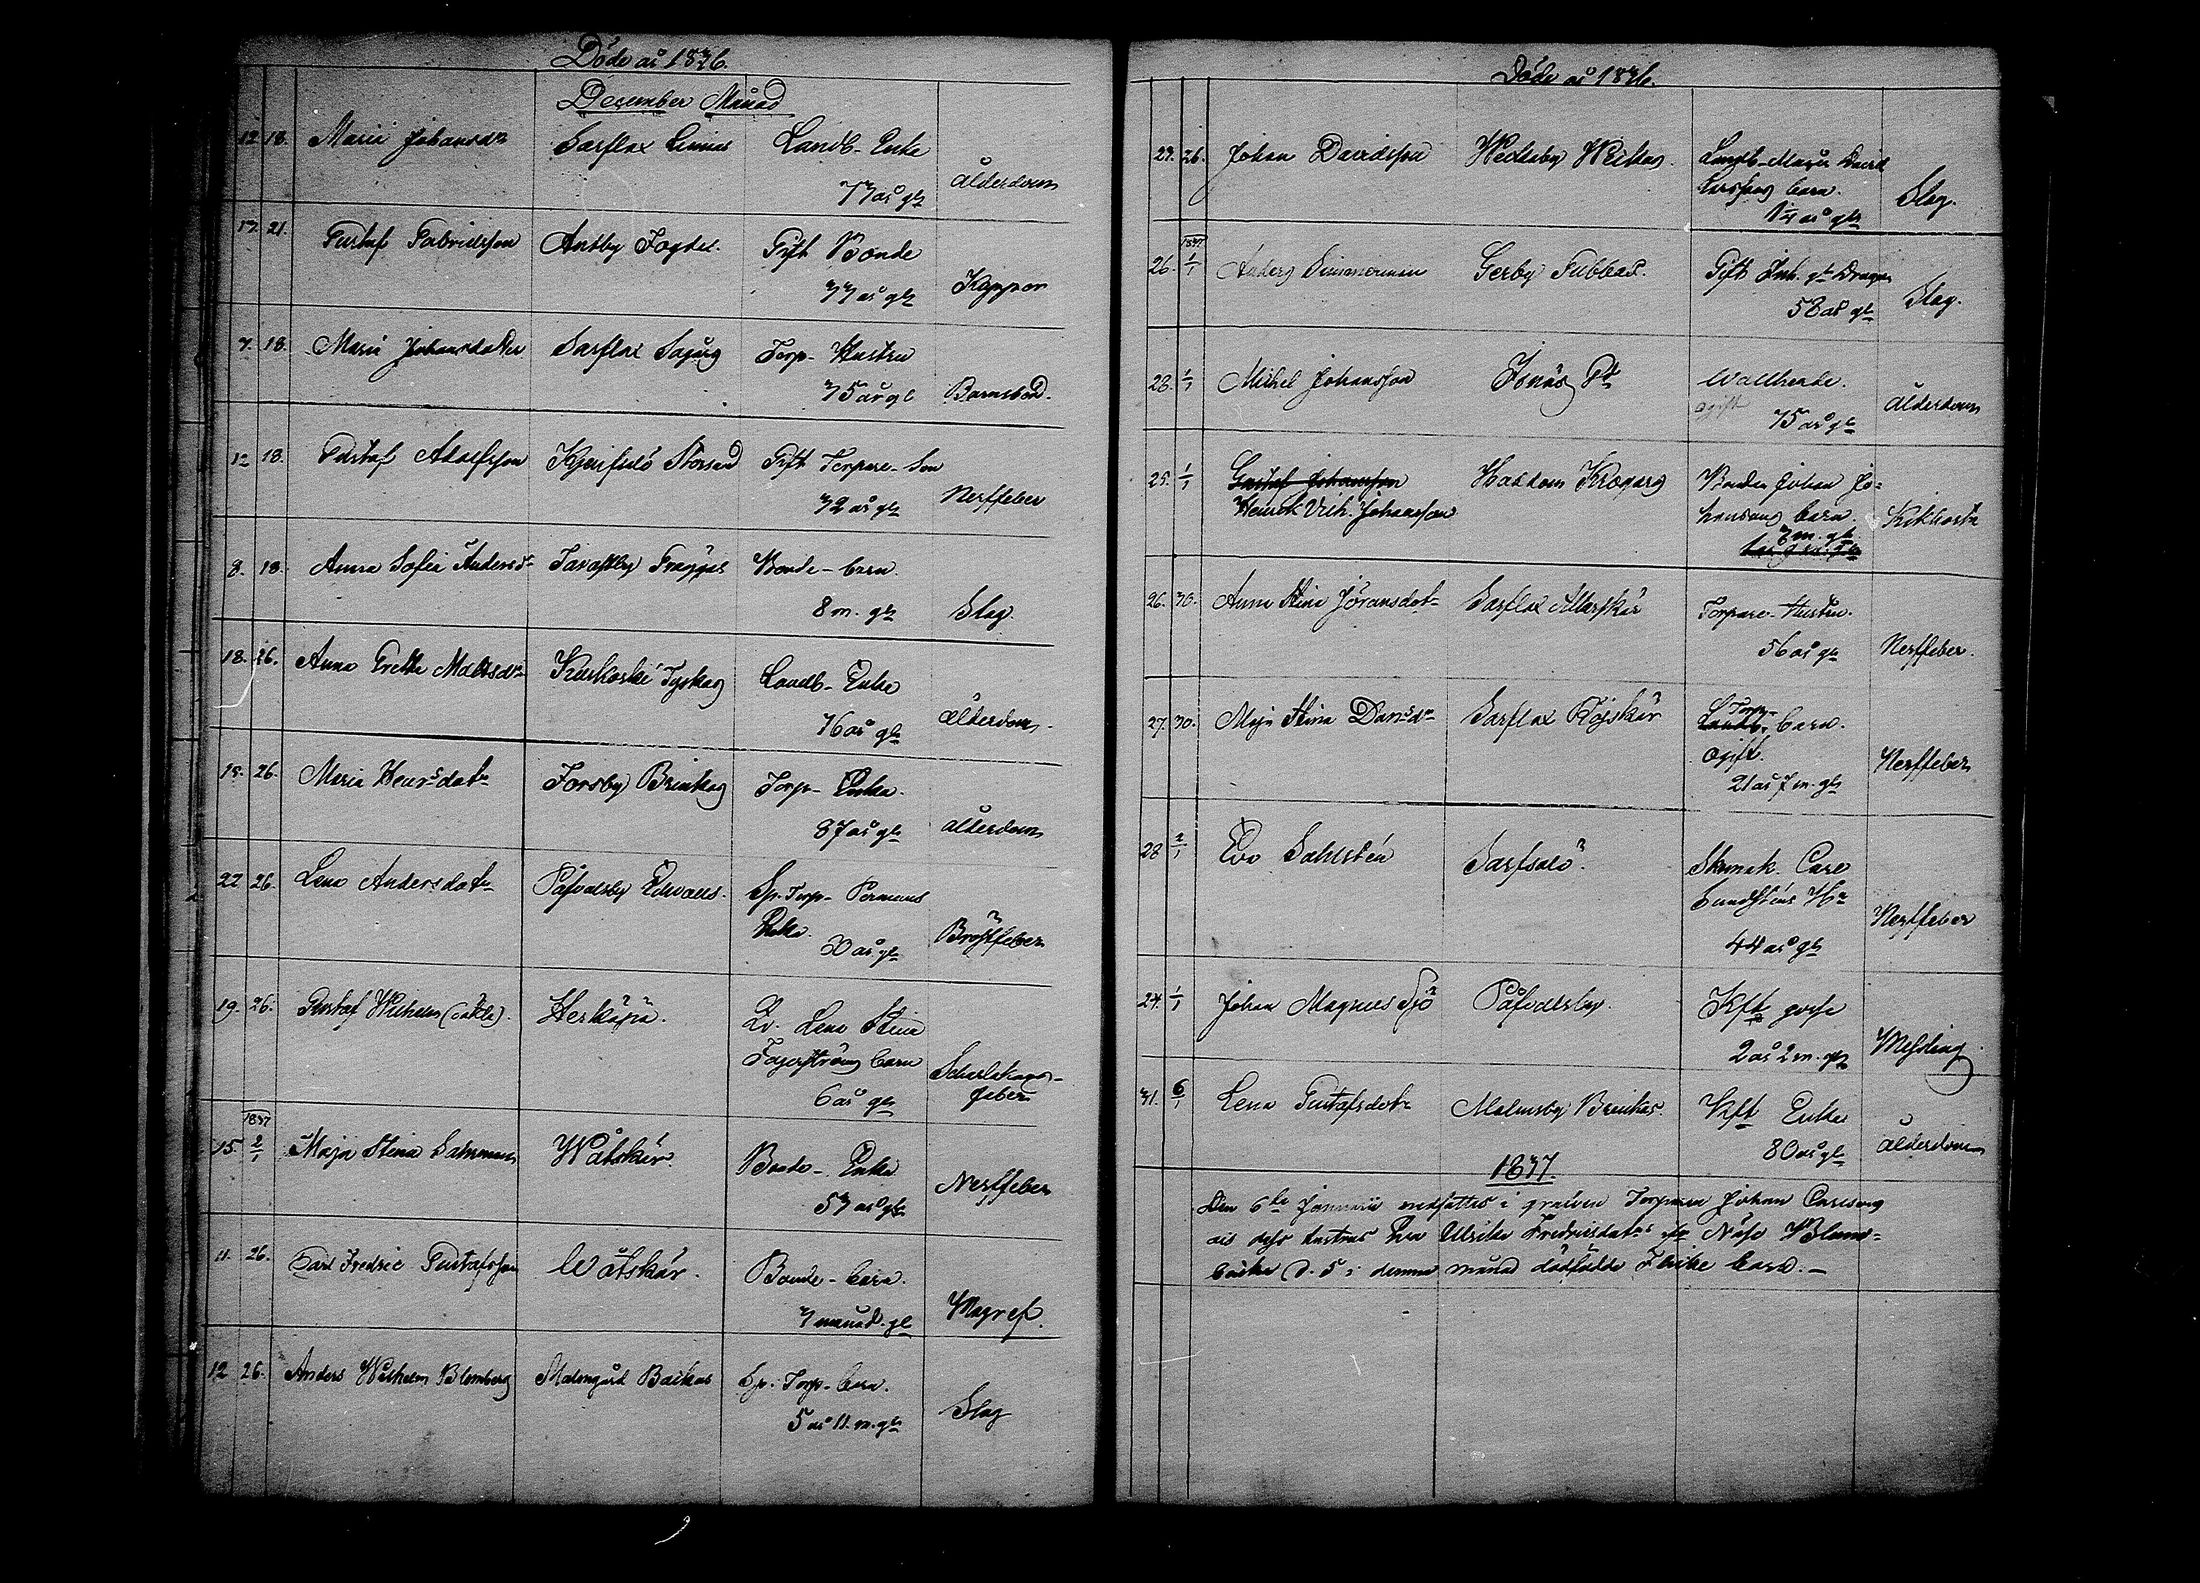 Döde år 1836.
December Månad
12. 18. Maria Johansdr Sarflax Landb- Enka
77 år gl Ålderdom
17. 21. Gustaf Gabrielsson Antby Fogdes. Gift Bonde
37 år gl Koppor
7. 18. Maria Johansdotter Sarflax Torp- Hustru
35 år gl Barnsbörd.
12 18. Gustaf Adolfsson Storsand Gift Torpare- Son
32 år gl Nerffeber
8. 18. Anna Sofia Andersdr Tavastby Bonde- barn.
8 m. gl Slag.
18. 26. Anna Greta Mattsdr Kuskoski Tyskas Landb- Enka
76 år gl Ålderdom.
15. 26. Maria Henrsdotr Forsby Brinkas Torp- Enka.
87 år gl Ålderdom
22 26. Lena Andersdotr Påfvalsby Edvalls. Sp. Torp-
Enka. 30 år gl Bröstfeber
19. 26. Gustaf Wilhelm (oäkta). Härkäpä. Lena Stina
Fagerström barn
6 år gl Scharlakans-
feber
1837
15. 2/1 Maja Stina Wåtskär. Bonde- Enka
53 år gl Nerffeber
11. 26. Carl Fredric Gustafsson Wåtskär. Bonde- barn.
3 månad. gl Magref.
12 26. Anders Wilhelm Blomberg Malmgård Backas Sp. Torp- barn.
5 år 11. m. gl Slag
Döde år 1836.
23. 26. Johan Davidsson Weckas. David
Larssons barn.
år gl Slag.
1837
26. 1/1 Anders Simmerman Gerby Gubbas. Gift Inh. gl Dragon
58 år gl Slag.
28. 1/1 Michel Johansson Jonas Wallherde.
ogift 75 år gl Ålderdom
25. 1/1 Gustaf Johansson Haddom Krogars Bonden Johan Jo-
Henrik Vilh. Johansson hansons barn. Kikhosta
7 m. gl
26. 30. Anna Stina Göransdotr Sarflax Torpare- Hustru.
56 år gl Nerffeber.
27. 30. Maja Stina Dansdr Sarflax Torp-
Landb- barn.
ogift.
21 år 7 m. gl Nerffeber
28 2/1 Eva Sahlstén Sarfsalö Skomak. Carl
Lundsténs Hu
44 år gl Nerffeber
24. 1/1 Johan Magnus Sjö Påfvalsby. Kft gosse
2 år 2 m. gl Messling
31. 6/1 Lena Gustafsdotr Malmsby Brinkas. Kft Enka
80 år gl Ålderdom
1837
Den 6te Januarii nedsattes i grafven Torparen Johan Carlsons
och dess hustrus Eva Ulrika Fredriksdotrs Näse
backa d. 5 i denna månad dödfödde Flicke barn.-